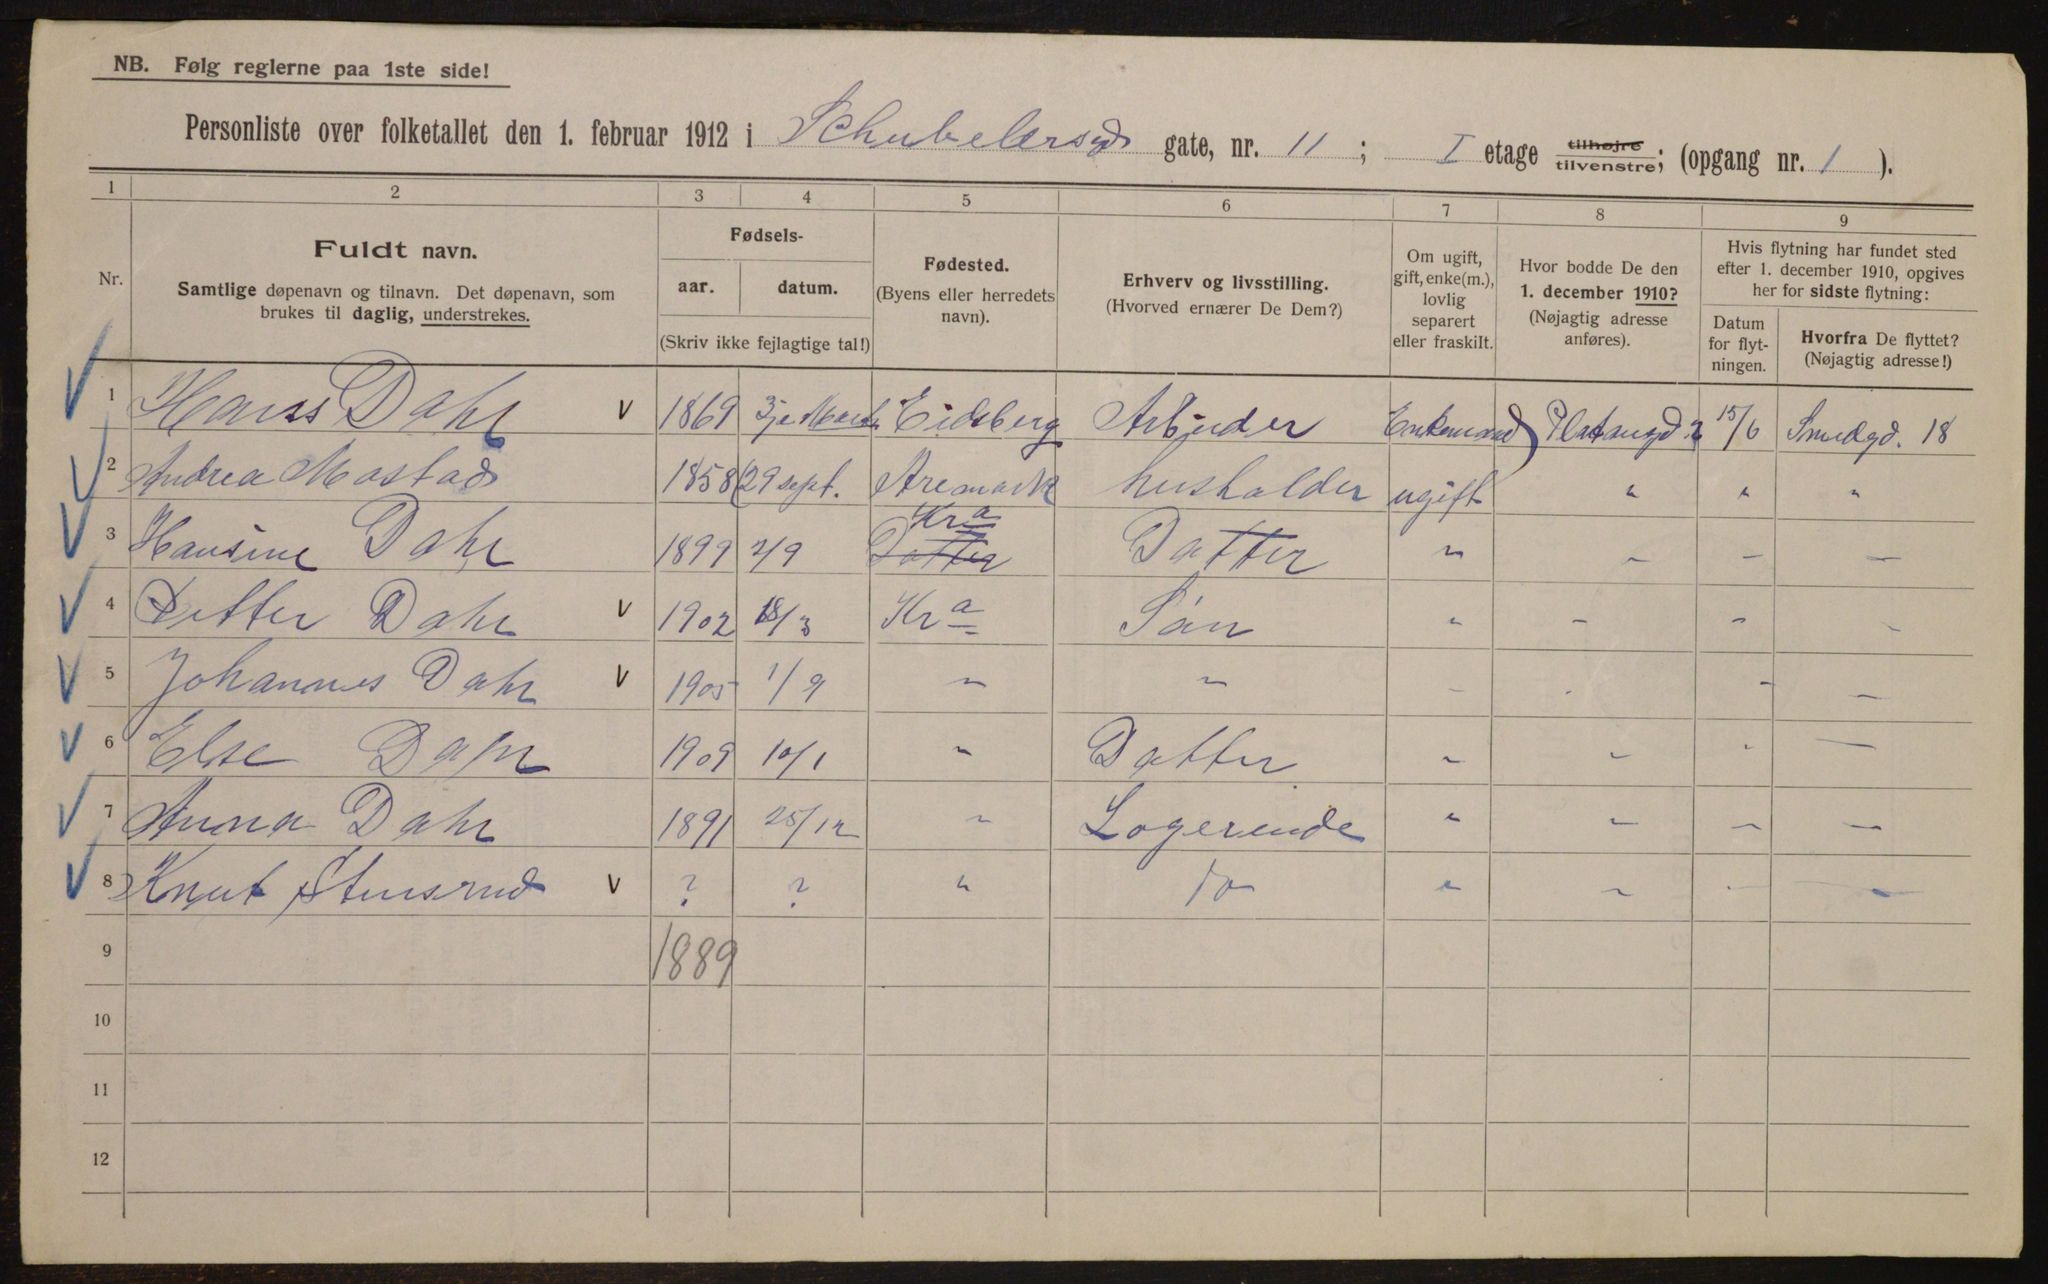 NB. Følg reglerne paa 1ste side!
Personliste over folketallet den 1. februar 1912 i Schubelersgd gate, nr. 11 ; I etage tilhøjre tilvenstre; (opgang nr. 1 ).
1 2 3 4 5 6 7 8 9
Nr.
Fuldt navn.
Samtlige døpenavn og tilnavn. Det døpenavn, som
brukes til daglig, understrekes.
Fødsels-
aar. datum.
(Skriv ikke fejlagtige tal!)
Fødested.
(Byens eller herredets
navn).
Erhverv og livsstilling.
(Hvorved ernærer De Dem?)
Om ugift,
gift, enke(m.),
lovlig
separert
eller fraskilt.
Hvor bodde De den
1. december 1910?
(Nøjagtig adresse
anføres).
Hvis flytning har fundet sted
efter 1. december 1910, opgives
her for sidste flytning:
Datum
for flyt-
ningen.
Hvorfra De flyttet?
(Nøjagtig adresse!)
1 Hans Dahl v 1869 3je Marts Eidsberg Arbeider Enkemand 15/6 Smedgd. 18
2 Andrea Mostad 1858 29 sept. Aremark husholder ugift " " "
3 Hansine Dahl 1899 2/9 Datter Kra Datter " " - -
4 Petter Dahl v 1902 18/3 Kra Søn " - - -
5 Johannes Dahl v 1905 1/9 " " - - - -
6 Else Dahl 1909 10/1 " Datter " " - -
7 Anna Dahl 1891 25/12 " Logerende " " - -
8 Knut Stensrud v ? ? " do " - - -
9 1889
10
11
12